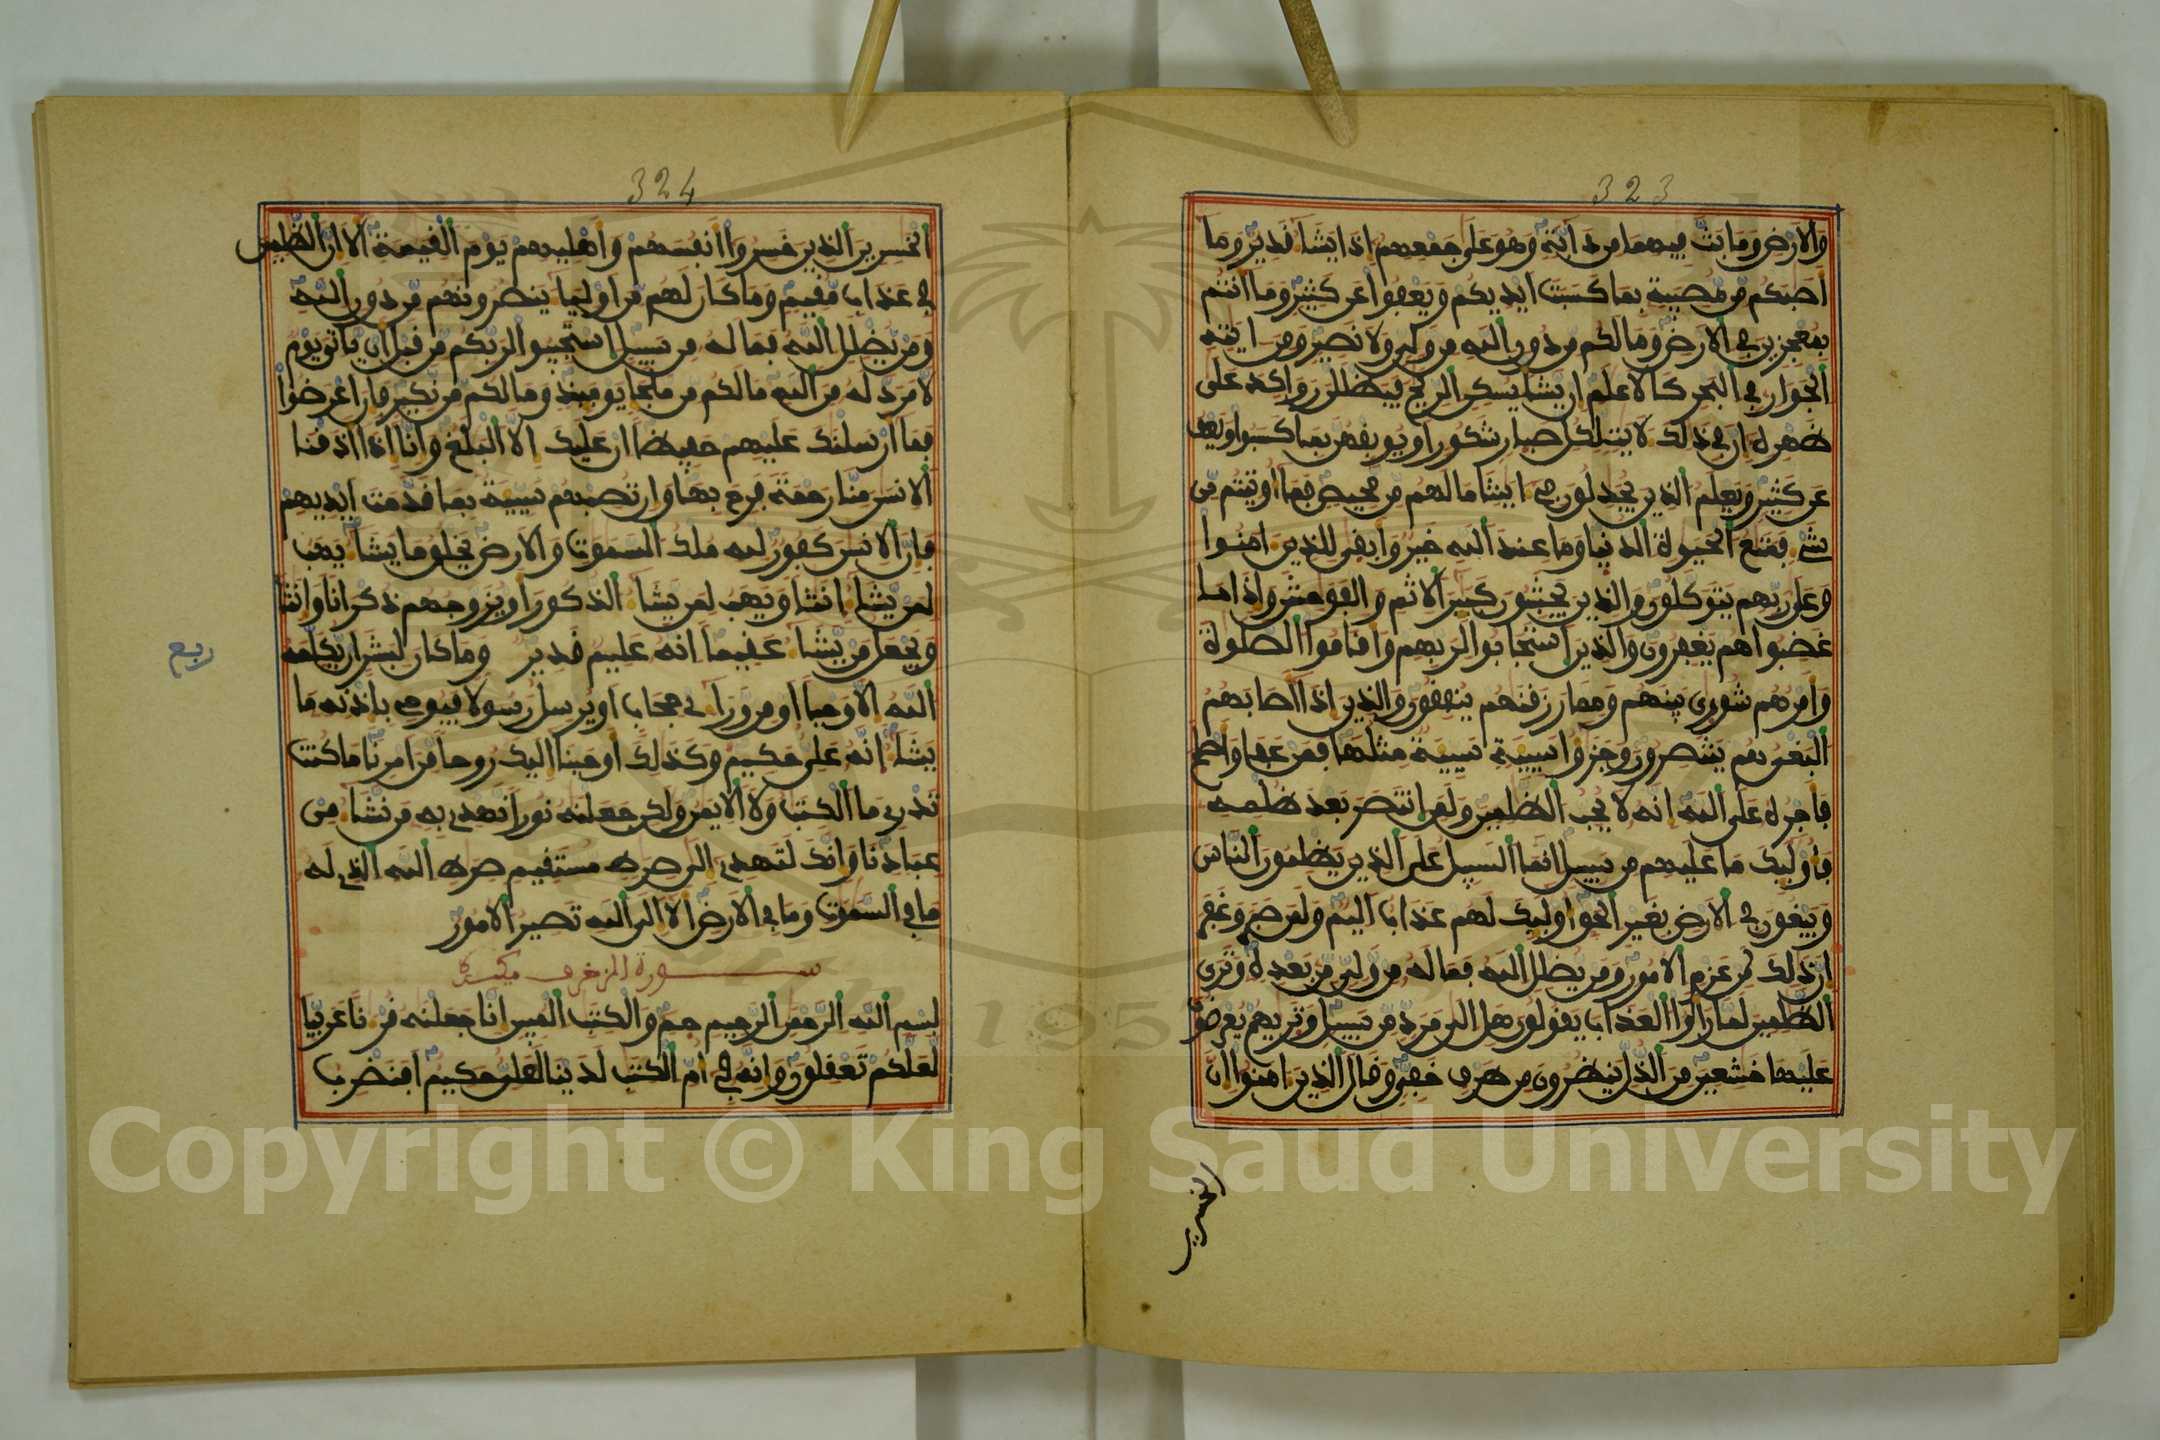 323
والارض وما بث فيهما من دابة وهو على جمعهم اذا يشا قدير وما
اصبكم من مصيبة بما كسبت ايديكم ويعفوا عن كثير وما انتم
بمعجزين في الارض وما لكم من دون الله من ولي ولا نصير ومن ايته
الجوار في البحر كالاعلم ان يشا يسكن الريح فيظللن رواكد على
ظهره ان في ذلك لايت لكل صبار شكور او يوبقهن بما كسبوا ويعف
عن كثير ويعلم الذين يجدلون في ايتنا ما لهم من محيص فما اوتيتم من
شي فمتع الحيوة الدنيا وما عند الله خير وابقى للذين امنوا
وعلى ربهم يتوكلون والذين يجتنبون كبير الاثم والفوحش واذا ما
غضبوا هم يغفرون والذين استجابوا لربهم واقاموا الصلوة
وامرهم شورى بينهم ومما رزقنهم ينفقون والذين اذا اصابهم
البغي هم ينتصرون وجزوا سيية سيية مثلها فمن عفا واصلح
فاجره على الله انه لا يحب الظلمين ولمن انتصر بعد ظلمه
فاوليك ما عليهم من سبيل انما السبيل على الذين يظلمون الناس
ويبغون في الارض بغير الحق اوليك لهم عذاب اليم ولمن صبر وغفر
ان ذلك لمن عزم الامور ومن يضلل الله فما له من ولي من بعده وترى
الظلمين لما راوا العذاب يقولون هل الى مرد من سبيل وتريهم يعرضون
عليها خشعين من الذل ينظرون من طرف خفي وقال الذين امنوا ان
الخسرين
324
الخسرين الذين خسروا انفسهم واهليهم يوم القيمة الا ان الظلمين
في عذاب مقيم وما كان لهم من اوليا ينصرونهم من دون الله
ومن يضلل الله فما له من سبيل استجيبوا لربكم من قبل ان ياتي يوم
لا مرد له من الله ما لكم من ملجا يوميذ وما لكم من نكير فان اعرضوا
فما ارسلنك عليهم حفيظا ان عليك الا البلغ وانا اذا اذقنا
الانسن منا رحمة فرح بها وان تصبهم سيية بما قدمت ايديهم
فان الانسن كفور لله ملك السموت والارض يخلق ما يشا يهب
لمن يشا انثا ويهب لمن يشا الذكور او يزوجهم ذكرانا وانثا
ويجعل من يشا عقيما انه عليم قدير وما كان لبشر ان يكلمه
ربع
الله الا وحيا او من وراي حجاب او يرسل رسولا فيوحي باذنه ما
يشا انه علي حكيم وكذلك اوحينا اليك روحا من امرنا ما كنت
تدري ما الكتب ولا الايمن ولكن جعلنه نورا نهدي به من نشا من
عبادنا وانك لتهدي الى صرط مستقيم صرط الله الذي له
ما في السموت وما في الارض الا الى الله تصير الامور
سورة الزخرف مكية
بسم الله الرحمن الرحيم حم والكتب المبين انا جعلنه قرنا عربيا
لعلكم تعقلون وانه في ام الكتب لدينا لعلي حكيم افنضرب
Copyright © King Saud University